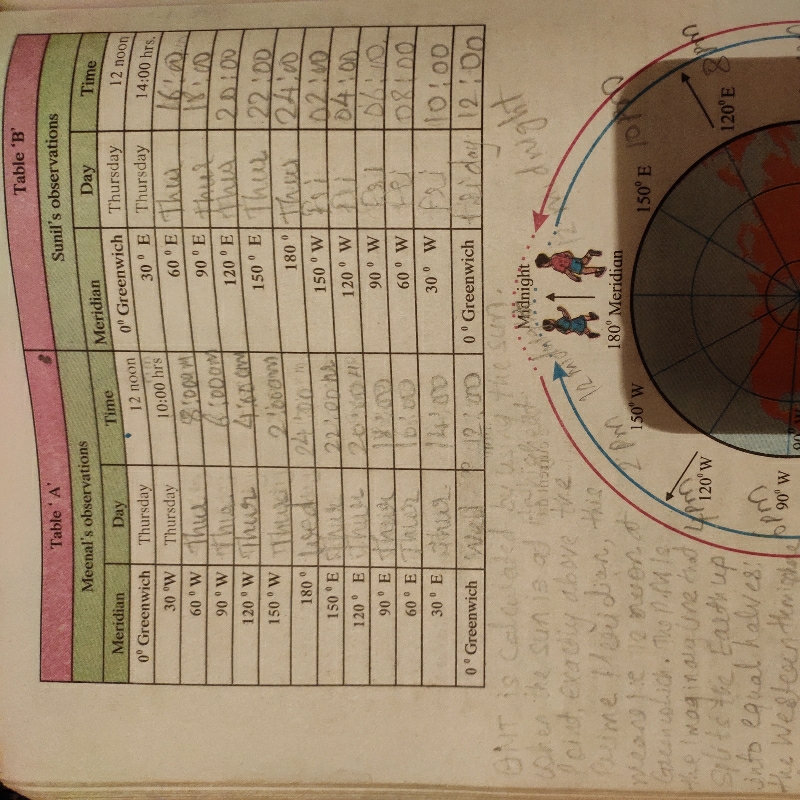 Table 'A'
Meenal's observations
Meridian Day Time
0° Greenwich Thursday 12 noon
30 °W Thursday 10:00 hrs
60 ° W Thur 8:00am
90 ° W Thu 6:00am
120 ° W Thur 4:00am
150 ° W Thur 2:00am
180 ° Wed 24:00
150 ° E Thur 22:00
120 ° E Thur 20:00
90 ° E Thur 18:00
60 ° E Thur 16:00
30 ° E Thur 14:00
0 ° Greenwich Wed 12:00
Table 'B'
Sunil's observations
Meridian Day Time
0° Greenwich Thursday 12 noon
30 ° E Thursday 14:00 hrs.
60 ° E Thur 16:00
90 ° E Thur 18:00
120 ° E Thu 20:00
150 ° E Thur 22:00
180 ° Thur 24:00
150 ° W Fri 02:00
120 ° W Fri 04:00
90 ° W Fri 06:00
60 ° W Fri 08:00
30 ° W Fri 10:00
0 ° Greenwich Friday 12:00
GMT is Calculate by the sun.
when the sun is at
Point, exactly above the
Prime Meridian, this
means it is noon at
Greenwich. The P.M is
the imaginary line that
Splits the Earth up
into equal halves:
the Western
Midnight
180° Meridian
150° W
2 pm
120° W
4pm
90° W
6pm
150° E
10pm
120° E
8pm